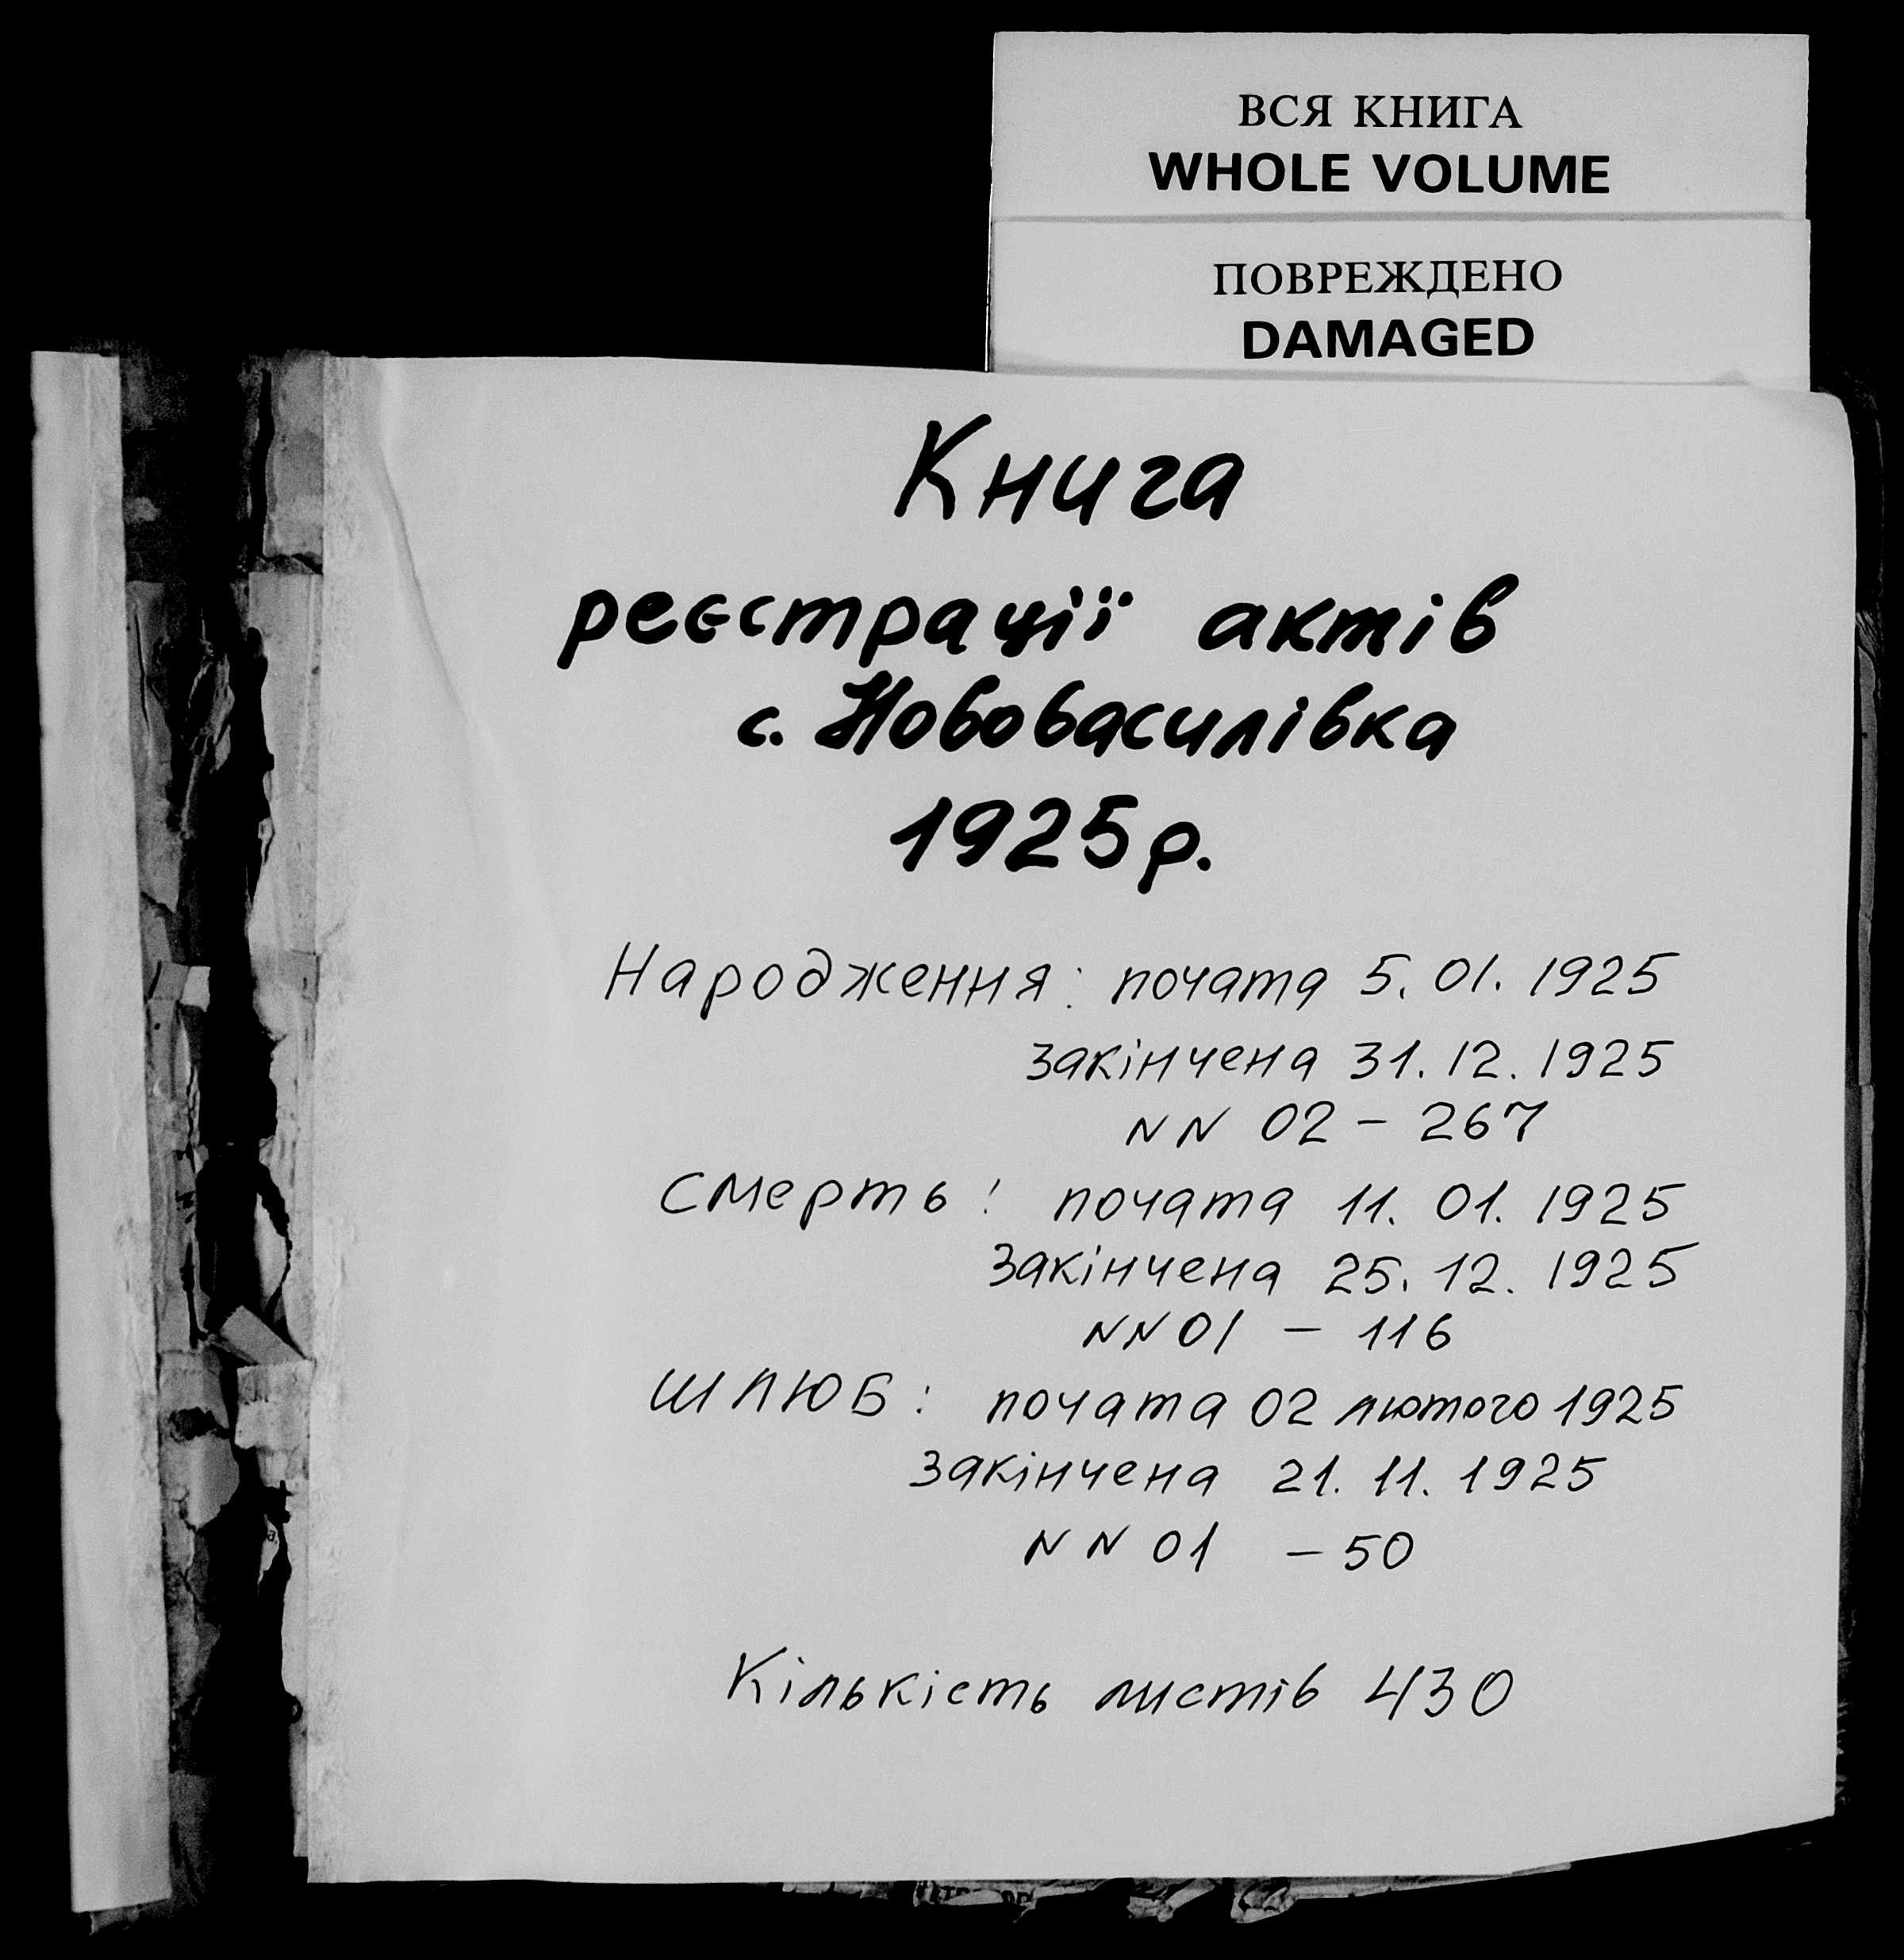 ВСЯ КНИГА
WHOLE VOLUME
ПОВРЕЖДЕНО
DAMAGED
Книга
реєстрації актів
с. Нововасилівка
1925р.
Народження: почата 5. 01. 1925
закінчена 31. 12. 1925
NN 02 - 267
Смерть: почата 11. 01. 1925
Закінчена 25. 12. 1925
NN 01 - 116
ШЛЮБ: почата 02 лютого 1925
Закінчена 21. 11. 1925
NN 01 - 50
Кількість листів 430